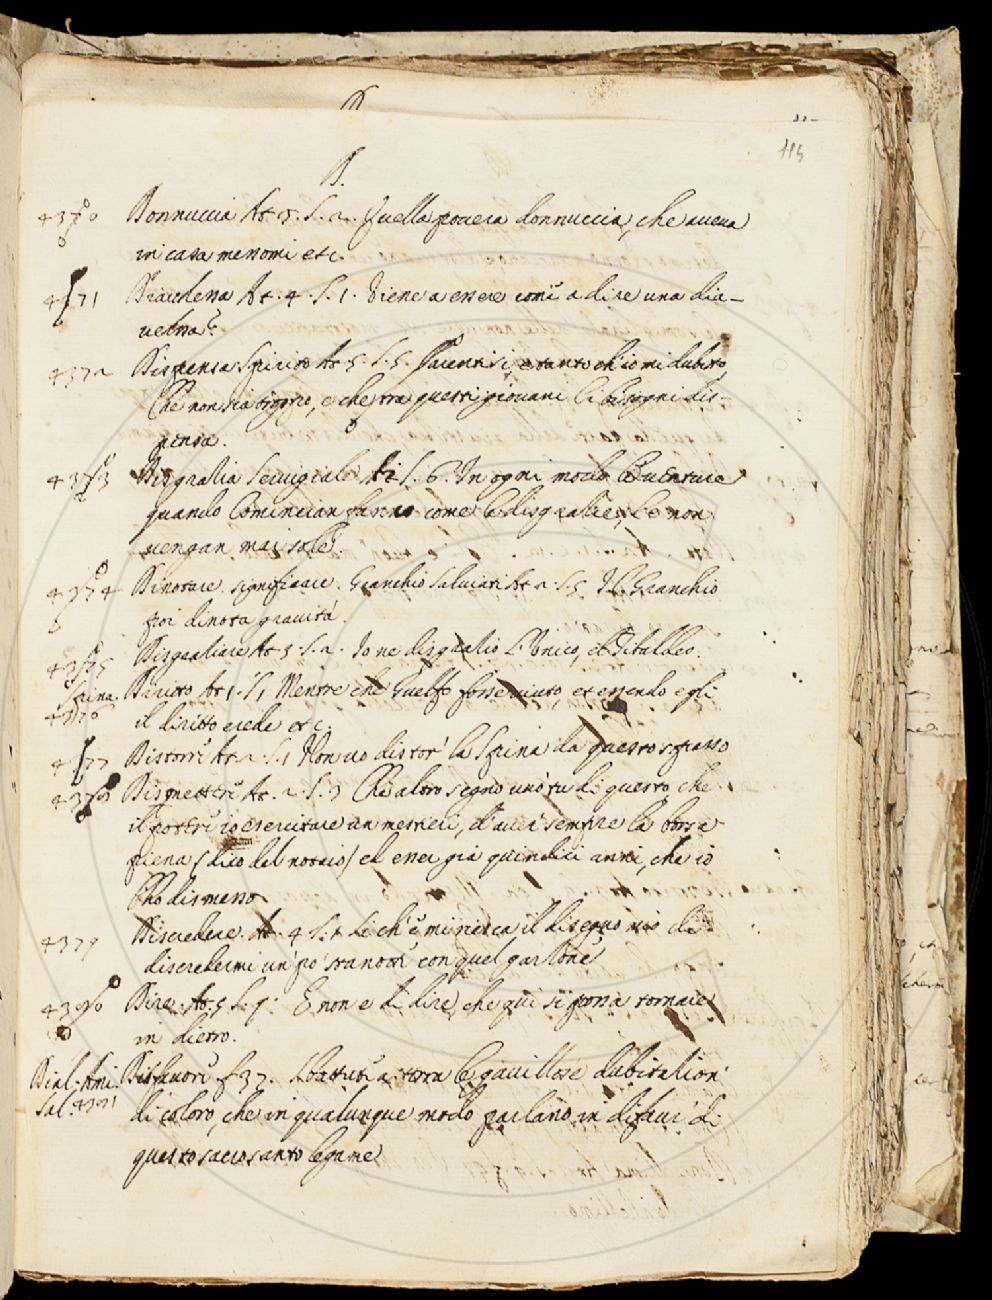 D.
115
4370 Donnuccia At. 5. S. 2. Quella povera donnuccia, che aveva
in casa messomi etc.
4371 At. 4. S. 1. Viene a essere come a dire una dia-
4372 Dispensa Spirito At. 5. S. 5. e tanto ch'io mi dubito,
Che non sia, e che tra questi giovani le bisogni dis-
pensa.
4373 Disgrazia Servigiale At S. 6. In ogni modo le venture
quando cominciano come le disgrazie, le non
vengan mai sole.
4374 Dinotare significare. Granchio Salviati At 2 S. 5 Il Granchio
poi dinota gravità.
4375 Disgraziare At 5 S. 2. Io ne disgrazio l'Unico, el Tibaldeo.
Spina
4376 Diritto At 1. S. 1 Mentre che Guelfo fosse vivuto, et essendo egli
il diritto erede etc.
4377 Distorre At 2. S. 1 Non vo distor la Spina da questo spasso
4378 Dismettere At. 2. S. 3 Che altro segno vuo' tu di questo, che
il poter io esercitare un mestiere, d'aver sempre la borsa
piena (dico del notaio) ed esser già quindici anni, che io
l'ho dismesso
4379 Discredere At. 4 S. 1 Se ch'e' mi riesca il disegno mio di
discredermi un po' stanotte con quel garzone
4380 Dire. At. 5 S. 9. E non e da dire, che qui si possa tornare
in dietro.
Dial. Ami. Disfavore f 37. Sbattute a terra le gavillose dubitazion
Sal 4381 di coloro, che in qualunque modo parlano in disfavor di
questo sacrosanto legame